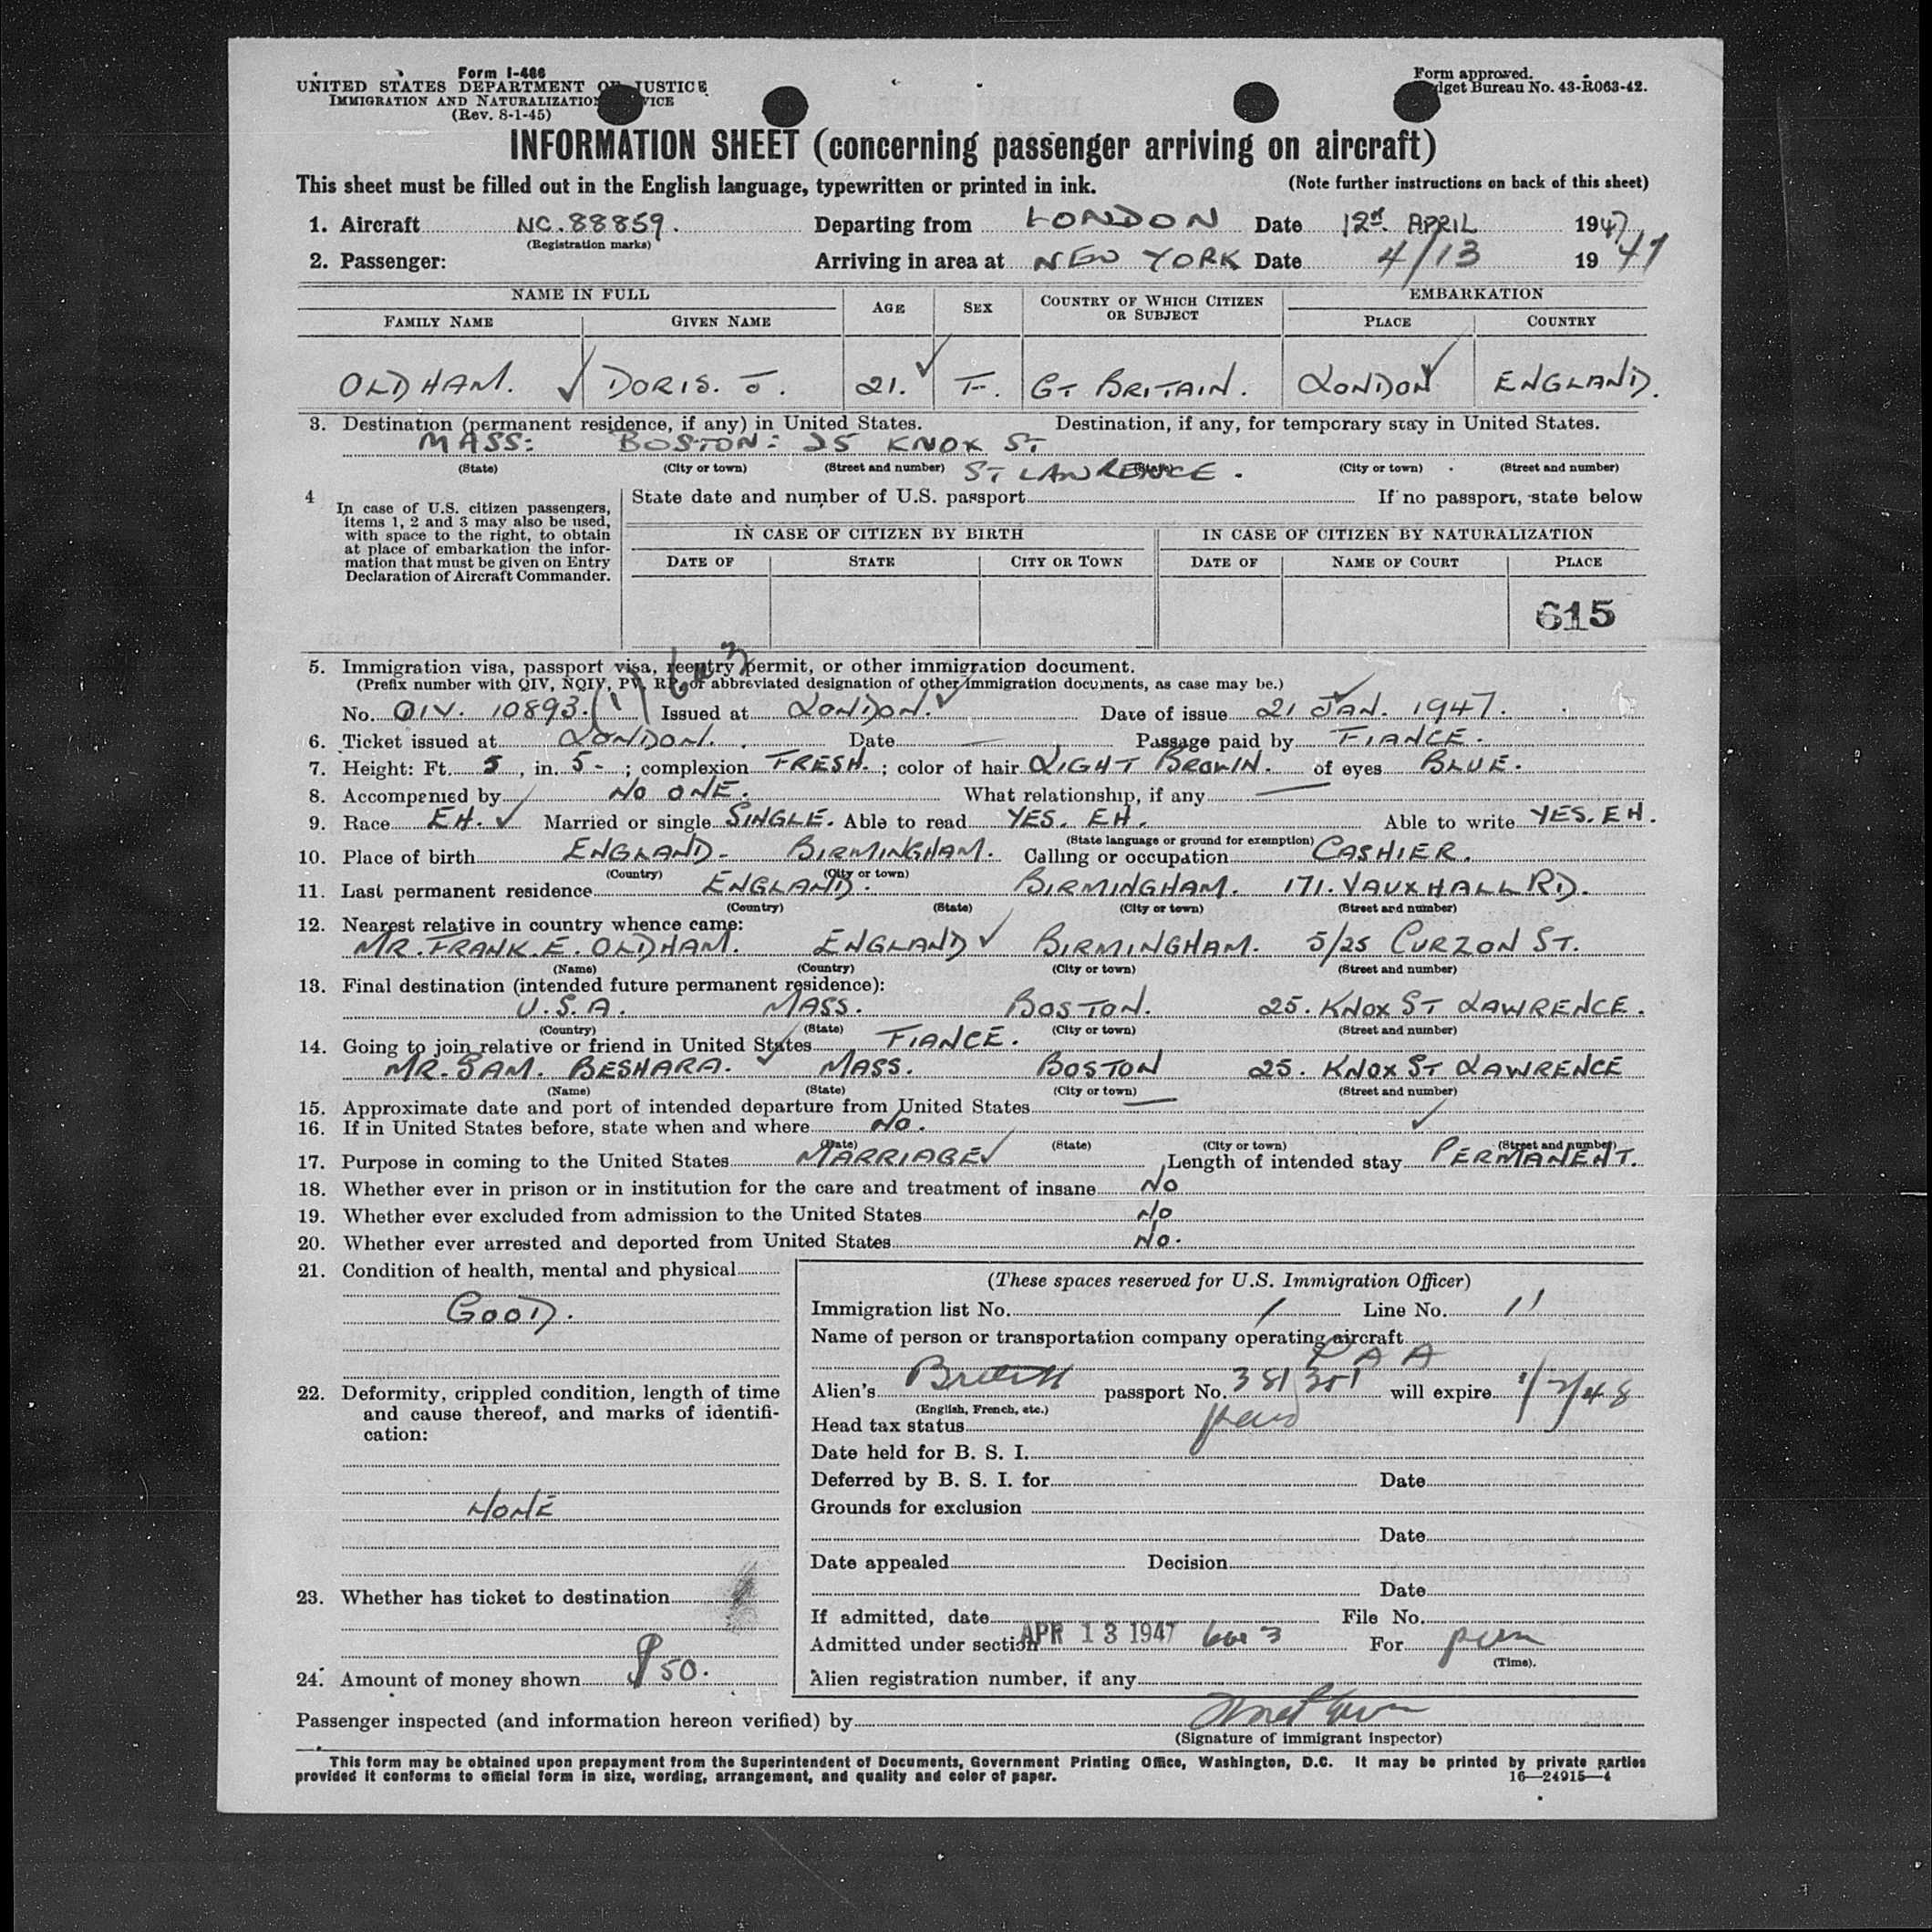 Form I-466
UNITED STATES DEPARTMENT OF JUSTICE
IMMIGRATION AND NATURALIZATION SERVICE
(Rev. 8-1-45)
Form approved.
Budget Bureau No. 43-R063-42.
INFORMATION SHEET (concerning passenger arriving on aircraft)
This sheet must be filled out in the English language, typewritten or printed in ink. (Note further instructions on back of this sheet)
1. Aircraft NC. 88859. Departing from LONDON Date 12 APRIL 1947
(Registration marks)
2. Passenger: Arriving in area at NEW YORK Date 4/13 1947
NAME IN FULL AGE SEX COUNTRY OF WHICH CITIZEN OR SUBJECT EMBARKATION
FAMILY NAME GIVEN NAME PLACE COUNTRY
OLDHAM. DORIS. J. 21. F. GT BRITAIN. LONDON ENGLAND.
3. Destination (permanent residence, if any) in United States. Destination, if any, for temporary stay in United States.
MASS: BOSTON: 25 KNOX ST
(State) (City or town) (Street and number) ST LAWRENCE. (State) (City or town) (Street and number)
4 In case of U.S. citizen passengers, items 1, 2 and 3 may also be used, with space to the right, to obtain at place of embarkation the information that must be given on Entry Declaration of Aircraft Commander.
State date and number of U.S. passport If no passport, state below
IN CASE OF CITIZEN BY BIRTH IN CASE OF CITIZEN BY NATURALIZATION
DATE OF STATE CITY OR TOWN DATE OF NAME OF COURT PLACE
615
5. Immigration visa, passport visa, reentry permit, or other immigration document.
(Prefix number with QIV, NQIV, PV, RP, or abbreviated designation of other immigration documents, as case may be.)
No. QIV. 10893. (1) 6a3 Issued at LONDON. Date of issue 21 JAN. 1947.
6. Ticket issued at LONDON. Date — Passage paid by FIANCE.
7. Height: Ft. 5, in. 5 - ; complexion FRESH. ; color of hair LIGHT BROWN. of eyes BLUE.
8. Accompanied by NO ONE. What relationship, if any —
9. Race EH. Married or single SINGLE. Able to read YES. EH. Able to write YES. EH.
(State language or ground for exemption)
10. Place of birth ENGLAND - BIRMINGHAM. Calling or occupation CASHIER.
(Country) (City or town)
11. Last permanent residence ENGLAND. BIRMINGHAM. 171. VAUXHALL RD.
(Country) (State) (City or town) (Street and number)
12. Nearest relative in country whence came:
MR. FRANK. E. OLDHAM. ENGLAND BIRMINGHAM. 5/25 CURZON ST.
(Name) (Country) (City or town) (Street and number)
13. Final destination (intended future permanent residence):
U.S.A. MASS. BOSTON. 25. KNOX ST LAWRENCE.
(Country) (State) (City or town) (Street and number)
14. Going to join relative or friend in United States FIANCE.
MR. SAM. BESHARA. MASS. BOSTON 25. KNOX ST LAWRENCE
(Name) (State) (City or town) (Street and number)
15. Approximate date and port of intended departure from United States —
16. If in United States before, state when and where NO.
(Date) (State) (City or town) (Street and number)
17. Purpose in coming to the United States MARRIAGE Length of intended stay PERMANENT.
18. Whether ever in prison or in institution for the care and treatment of insane NO
19. Whether ever excluded from admission to the United States NO
20. Whether ever arrested and deported from United States NO.
21. Condition of health, mental and physical
GOOD.
22. Deformity, crippled condition, length of time and cause thereof, and marks of identification:
NONE
23. Whether has ticket to destination
24. Amount of money shown $50.
(These spaces reserved for U.S. Immigration Officer)
Immigration list No. 1 Line No. 11
Name of person or transportation company operating aircraft
PAA
Alien's British passport No. 381351 will expire 1/7/48
(English, French, etc.)
Head tax status paid
Date held for B. S. I.
Deferred by B. S. I. for Date
Grounds for exclusion
Date
Date appealed Decision
Date
If admitted, date APR 13 1947 File No.
Admitted under section 6a3 For perm
(Time).
Alien registration number, if any
Passenger inspected (and information hereon verified) by
(Signature of immigrant inspector)
This form may be obtained upon prepayment from the Superintendent of Documents, Government Printing Office, Washington, D.C. It may be printed by private parties
provided it conforms to official form in size, wording, arrangement, and quality and color of paper. 16—24915-4